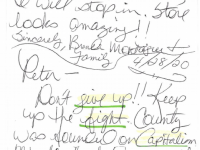 & will stop in. Store
looks amazing!!
Sincerely,
Family 4/08/20
Peter -
Don't give up!! Keep
up the fight. County
was founded on Capitalism